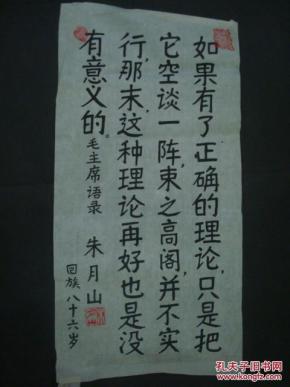 如果有了正确的理论,只是把
它空谈一阵,束之高阁,并不实
行,那末,这种理论再好也是没
有意义的
毛主席语录
朱月山
回族八十六岁
孔夫子旧书网